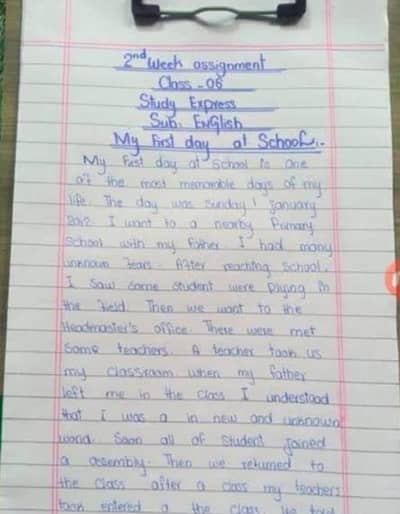 2nd Week assignment
Class - 06
Study Express
Sub: English
My First day at School:-
My First day at School is one
of the most memorable days of my
life. The day was Sunday 1 January
2012. I want to a nearby Primary
School with my Father. I had many
unknown Fears. After reaching School.
I Saw Some Student were Playing in
the Field. Then we want to the
Headmaster's office. There were met
Some teachers. A teacher took us
my classroom. when my father
left me in the class I understood
that I was a in new and unknown
world. Soon all of Student Joined
a assembly. Then we returned to
the class after a class my teachers
took entered a the class